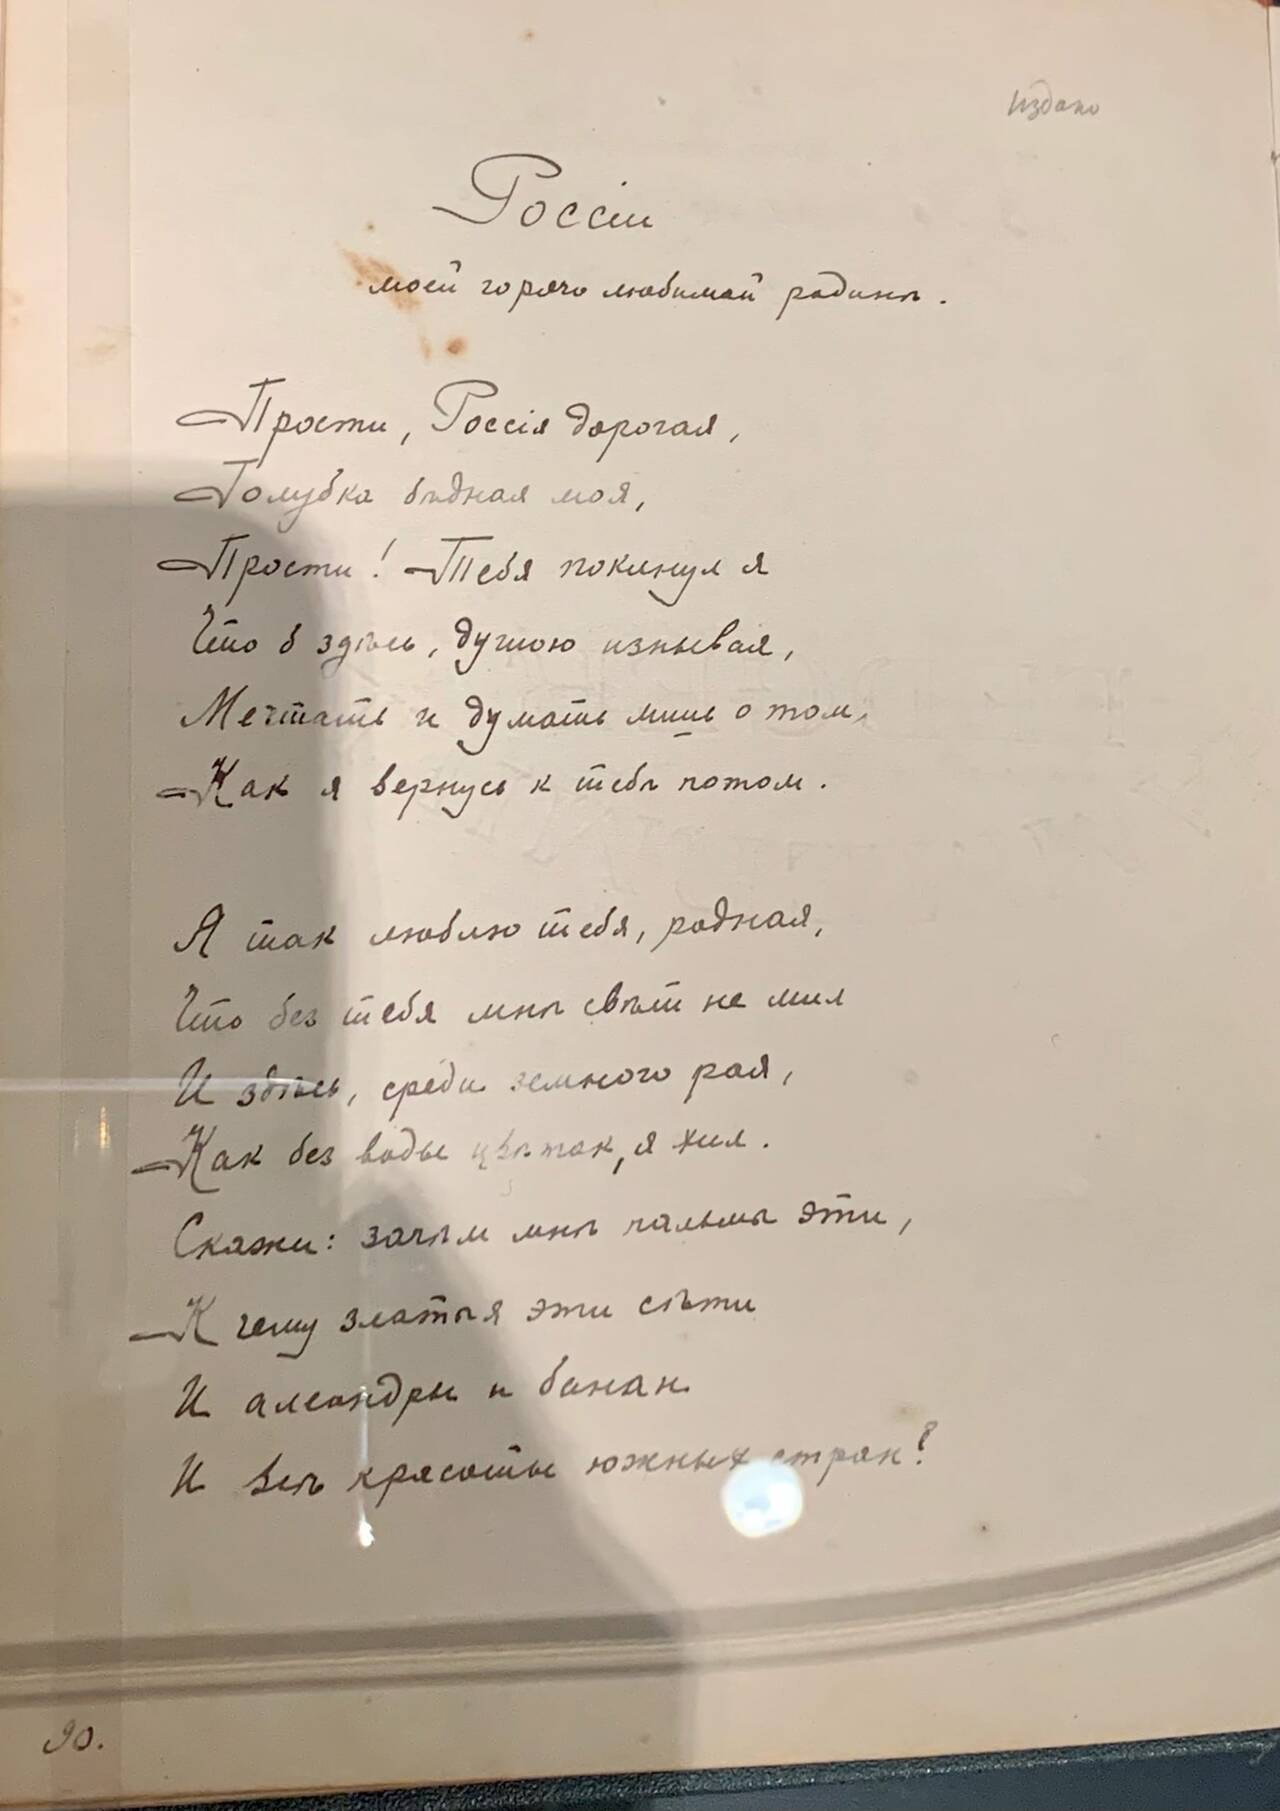 Издано
Россіи
моей горячо любимой родинѣ.
Прости, Россія дорогая,
Голубка бѣдная моя,
Прости! Тебя покинул я
Что б здѣсь, душою изнывая,
Мечтать и думать лишь о том,
Как я вернусь к тебѣ потом.
Я так люблю тебя, родная,
Что без тебя мнѣ свѣт не мил
И здѣсь, среди земного рая,
Как без воды цвѣток, я хил.
Скажи: зачѣм мнѣ пальмы эти,
К чему златыя эти сѣти
И алеандры и банан
И всѣ красоты южных стран?
90.